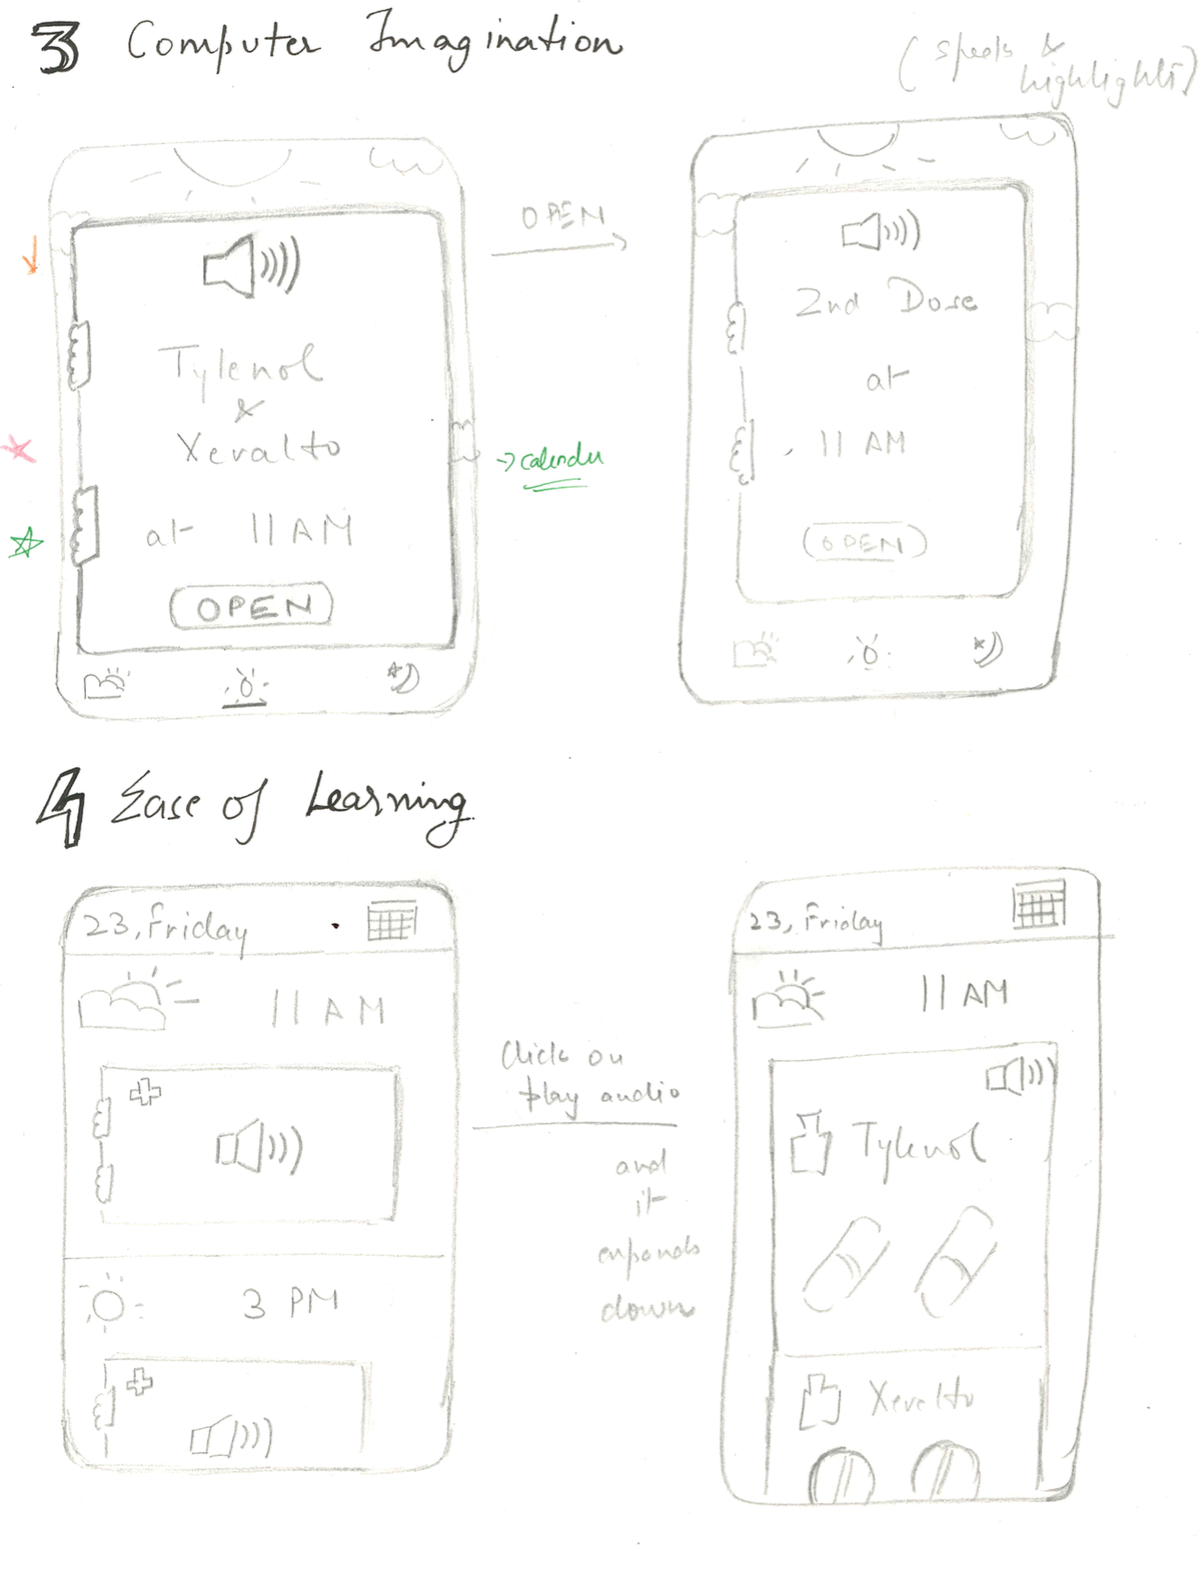 3 Computer Imagination
(speaks &
highlights)
Tylenol
&
Xeralto
at 11 AM
OPEN
OPEN
→ calender
2nd Dose
at
11 AM
OPEN
4 Ease of Learning
23, Friday
11 AM
3 PM
Click on
play audio
and
it
expands
down
23, Friday
11 AM
Tylenol
Xeralto